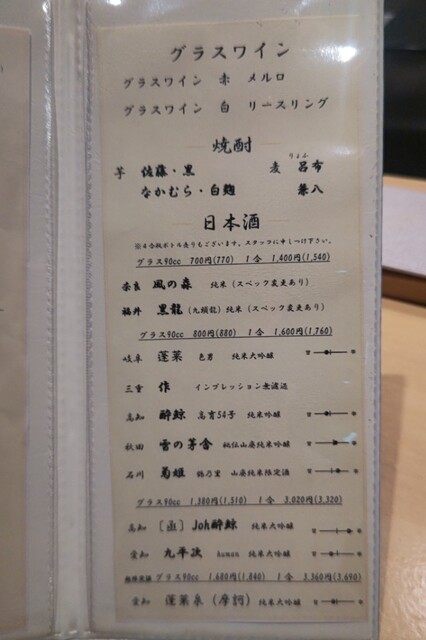 グラスワイン
グラスワイン 赤 メルロ
グラスワイン 白 リースリング
焼酎
芋 佐藤・黒 麦 呂布
りょふ
なかむら・白麹 兼八
日本酒
※4合瓶ボトル売りもございます。スタッフに申しつけ下さい。
グラス90cc 700円(770) 1合 1,400円(1,540)
奈良 風の森 純米(スペック変更あり)
福井 黒龍(九頭龍)純米(スペック変更あり)
グラス90cc 800円(880) 1合 1,600円(1,760)
岐阜 蓬莱 色男 純米大吟醸
三重 作 インプレッション無濾過
高知 酔鯨 高育54号 純米吟醸
秋田 雪の茅舎 秘伝山廃純米吟醸
石川 菊姫 鶴乃里 山廃純米限定酒
グラス90cc 1,380円(1,510) 1合 3,020円(3,320)
高知 [函]Joh酔鯨 純米大吟醸
愛知 九平次 human 純米大吟醸
グラス90cc 1,680円(1,840) 1合 3,360円(3,690)
愛知 蓬莱泉(摩訶)純米大吟醸